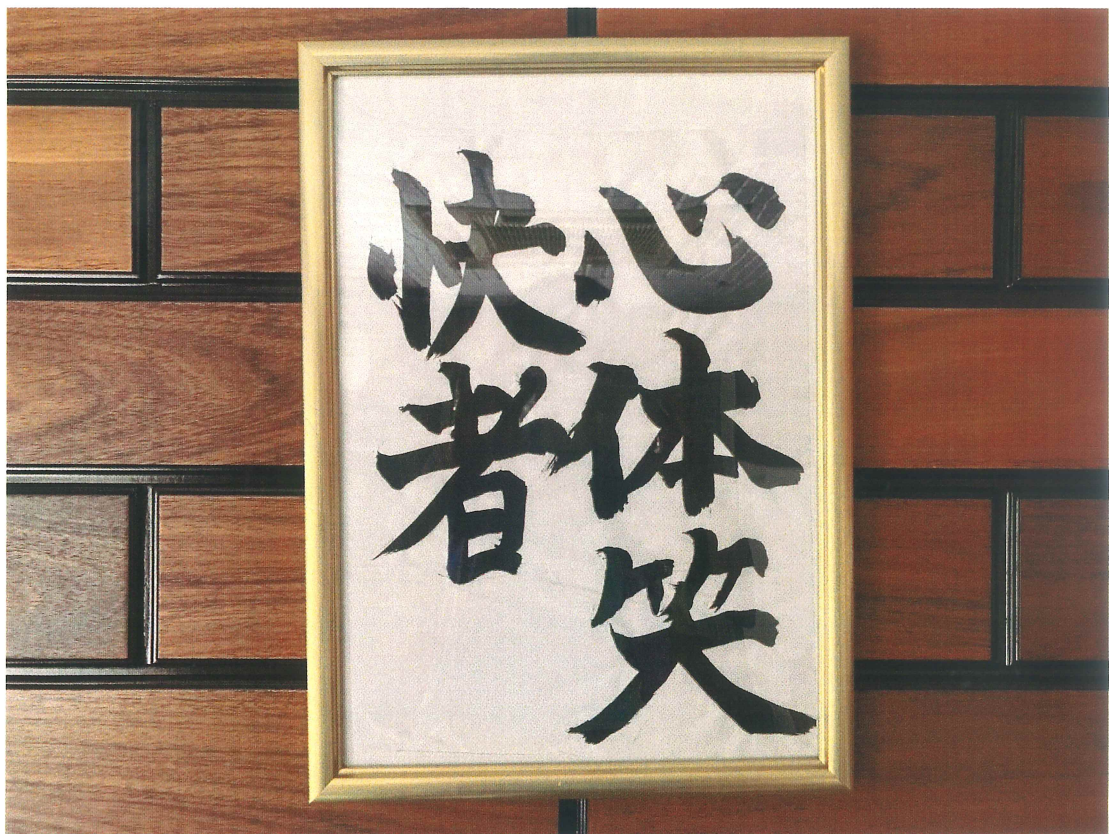 心体笑
快者